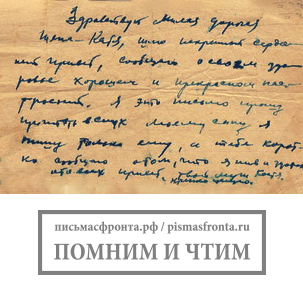 Здравствуй милая дорогая
Шена-Катя, шлю искренний сердеч
ный привет, сообщаю о своем здо
ровье хорошем и прекрасном нас
троении. Я это письмо прошу
прочитать вслух моему сыну я
пишу только ему, а тебе корот
ко сообщаю о том, что я жив и здоров
ото всех привет. Твой муж Катя.
письмасфронта.рф / pismasfronta.ru
ПОМНИМ И ЧТИМ